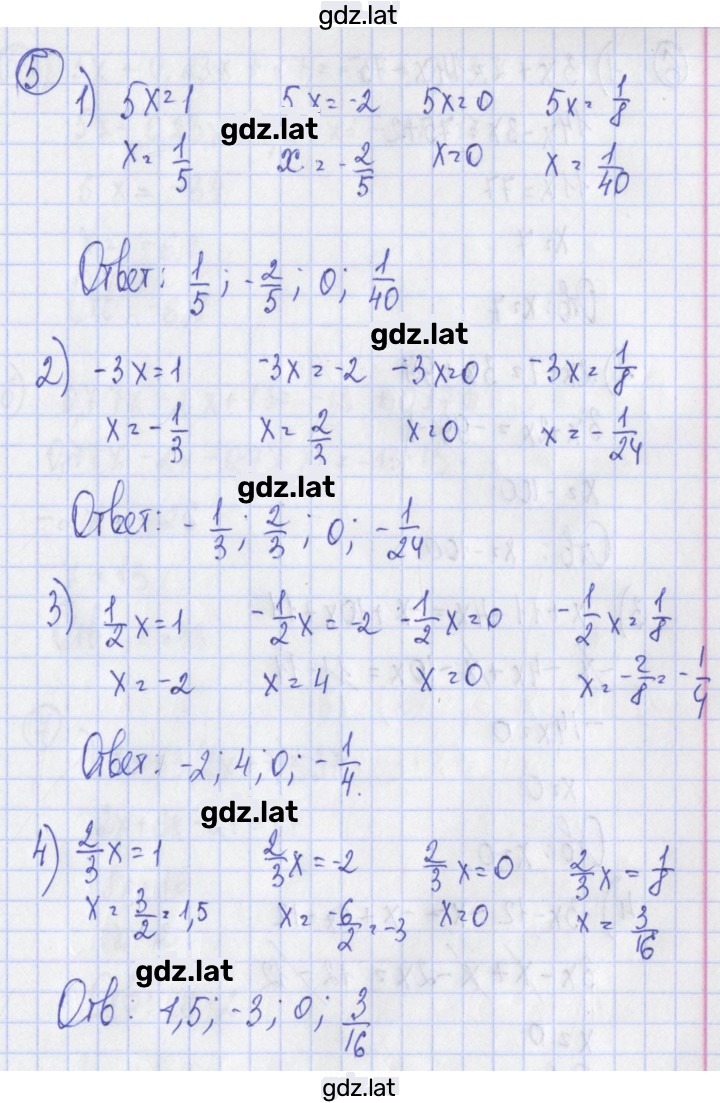 gdz.lat
5
1) 5x=1 5x=-2 5x=0 5x=1/8
gdz.lat
x=1/5 x=-2/5 x=0 x=1/40
Ответ: 1/5; -2/5; 0; 1/40
gdz.lat
2) -3x=1 -3x=-2 -3x=0 -3x=1/8
x=-1/3 x=2/3 x=0 x=-1/24
gdz.lat
Ответ: -1/3; 2/3; 0; -1/24
3) 1/2x=1 -1/2x=-2 -1/2x=0 -1/2x=1/8
x=-2 x=4 x=0 x=-2/8=-1/4
Ответ: -2; 4; 0; -1/4.
gdz.lat
4) 2/3x=1 2/3x=-2 2/3x=0 2/3x=1/8
x=3/2=1,5 x=-6/2=-3 x=0 x=3/16
gdz.lat
Отв: 1,5; -3; 0; 3/16
gdz.lat